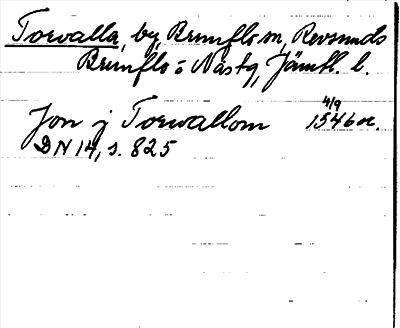 Torvalla, by, Brunflo sn, Revsunds
Brunflo o Näs tg, Jämtl. l.
4/9
Jon j Torvallom 1546 or.
DN 14, s. 825